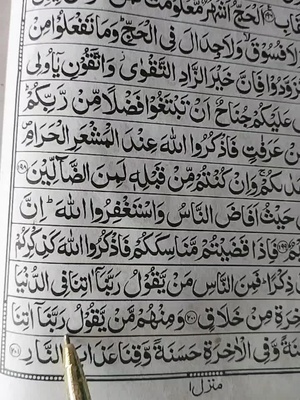 اَلْحَجُّ اَشْهُرٌ مَّعْلُوْمٰتٌ
لَا فُسُوْقَ ۙ وَلَا جِدَالَ فِی الْحَجِّ ؕ وَمَا تَفْعَلُوْا مِنْ
زَوَّدُوْا فَاِنَّ خَیْرَ الزَّادِ التَّقْوٰی ؗ وَاتَّقُوْنِ یٰۤاُولِی
عَلَیْكُمْ جُنَاحٌ اَنْ تَبْتَغُوْا فَضْلًا مِّنْ رَّبِّكُمْ ؕ
مِّنْ عَرَفٰتٍ فَاذْكُرُوا اللّٰهَ عِنْدَ الْمَشْعَرِ الْحَرَامِ ۪
وَاِنْ كُنْتُمْ مِّنْ قَبْلِهٖ لَمِنَ الضَّآلِّیْنَ ۝۱۹۸
حَیْثُ اَفَاضَ النَّاسُ وَاسْتَغْفِرُوا اللّٰهَ ؕ اِنَّ
فَاِذَا قَضَیْتُمْ مَّنَاسِكَكُمْ فَاذْكُرُوا اللّٰهَ كَذِكْرِكُمْ
ذِكْرًا ؕ فَمِنَ النَّاسِ مَنْ یَّقُوْلُ رَبَّنَاۤ اٰتِنَا فِی الدُّنْیَا
خِرَةِ مِنْ خَلَاقٍ ۝۲۰۰ وَمِنْهُمْ مَّنْ یَّقُوْلُ رَبَّنَاۤ اٰتِنَا
نَةً وَّفِی الْاٰخِرَةِ حَسَنَةً وَّقِنَا عَذَابَ النَّارِ ۝۲۰۱
منزل ۱